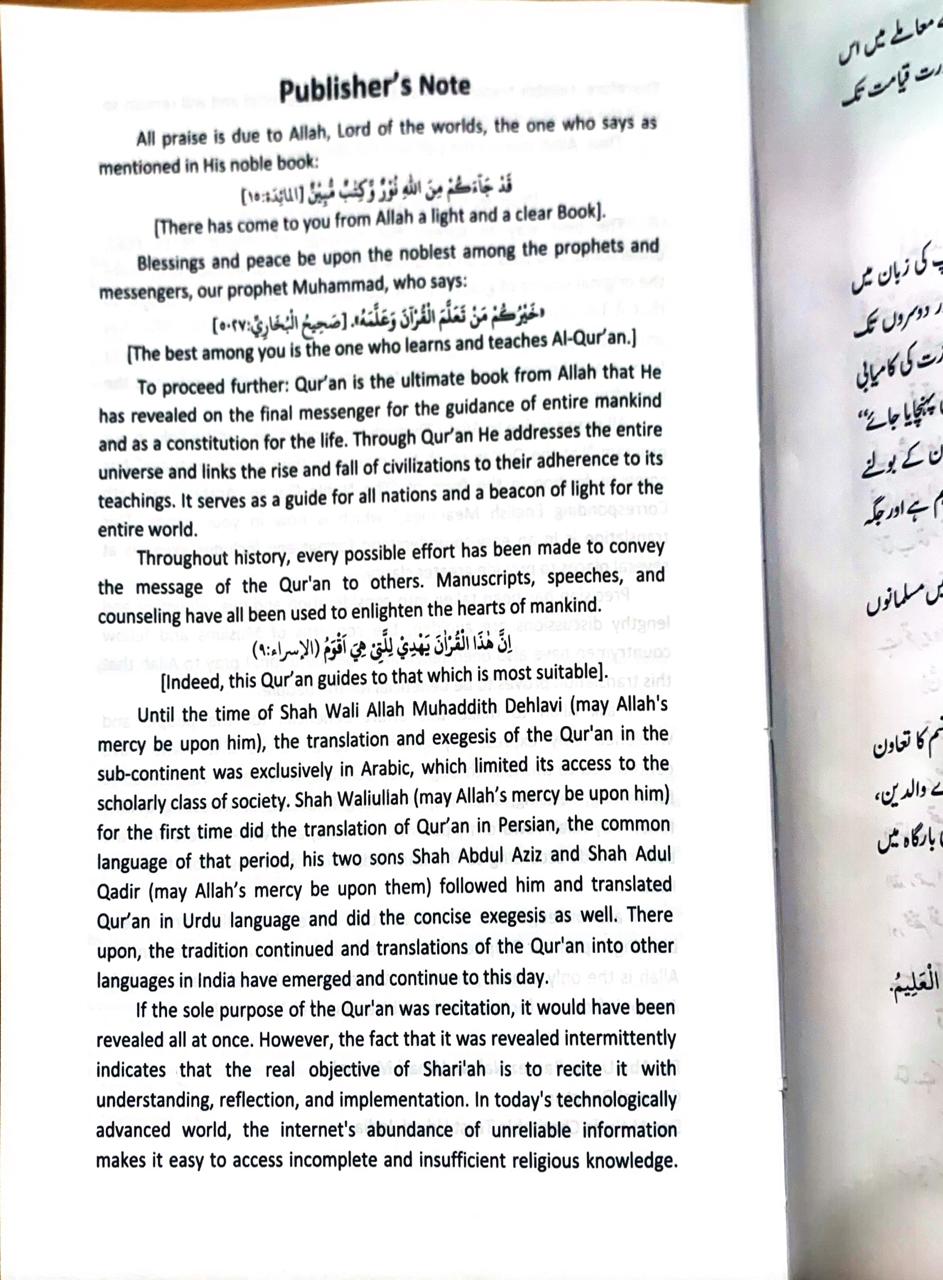 Publisher's Note
All praise is due to Allah, Lord of the worlds, the one who says as
mentioned in His noble book:
قَدْ جَآءَكُمْ مِنَ اللهِ نُوْرٌ وَّكِتٰبٌ مُّبِيْنٌ [المائدة:١٥]
[There has come to you from Allah a light and a clear Book].
Blessings and peace be upon the noblest among the prophets and
messengers, our prophet Muhammad, who says:
«خَيْرُكُمْ مَنْ تَعَلَّمَ الْقُرْآنَ وَعَلَّمَهُ». [صَحِيحُ الْبُخَارِيِّ:٥٠٢٧]
[The best among you is the one who learns and teaches Al-Qur'an.]
To proceed further: Qur'an is the ultimate book from Allah that He
has revealed on the final messenger for the guidance of entire mankind
and as a constitution for the life. Through Qur'an He addresses the entire
universe and links the rise and fall of civilizations to their adherence to its
teachings. It serves as a guide for all nations and a beacon of light for the
entire world.
Throughout history, every possible effort has been made to convey
the message of the Qur'an to others. Manuscripts, speeches, and
counseling have all been used to enlighten the hearts of mankind.
اِنَّ هٰذَا الْقُرْاٰنَ يَهْدِيْ لِلَّتِيْ هِيَ اَقْوَمُ (الإسراء:٩)
[Indeed, this Qur'an guides to that which is most suitable].
Until the time of Shah Wali Allah Muhaddith Dehlavi (may Allah's
mercy be upon him), the translation and exegesis of the Qur'an in the
sub-continent was exclusively in Arabic, which limited its access to the
scholarly class of society. Shah Waliullah (may Allah's mercy be upon him)
for the first time did the translation of Qur'an in Persian, the common
language of that period, his two sons Shah Abdul Aziz and Shah Adul
Qadir (may Allah's mercy be upon them) followed him and translated
Qur'an in Urdu language and did the concise exegesis as well. There
upon, the tradition continued and translations of the Qur'an into other
languages in India have emerged and continue to this day.
If the sole purpose of the Qur'an was recitation, it would have been
revealed all at once. However, the fact that it was revealed intermittently
indicates that the real objective of Shari'ah is to recite it with
understanding, reflection, and implementation. In today's technologically
advanced world, the internet's abundance of unreliable information
makes it easy to access incomplete and insufficient religious knowledge.
معاملے میں اس
قیامت تک
کی زبان میں
دوسروں تک
کی کامیابی
پہنچایا جائے“
کے بولنے
ہے اور جگہ
مسلمانوں
کا تعاون
والدین،
بارگاہ میں
الْعَلِيمُ.